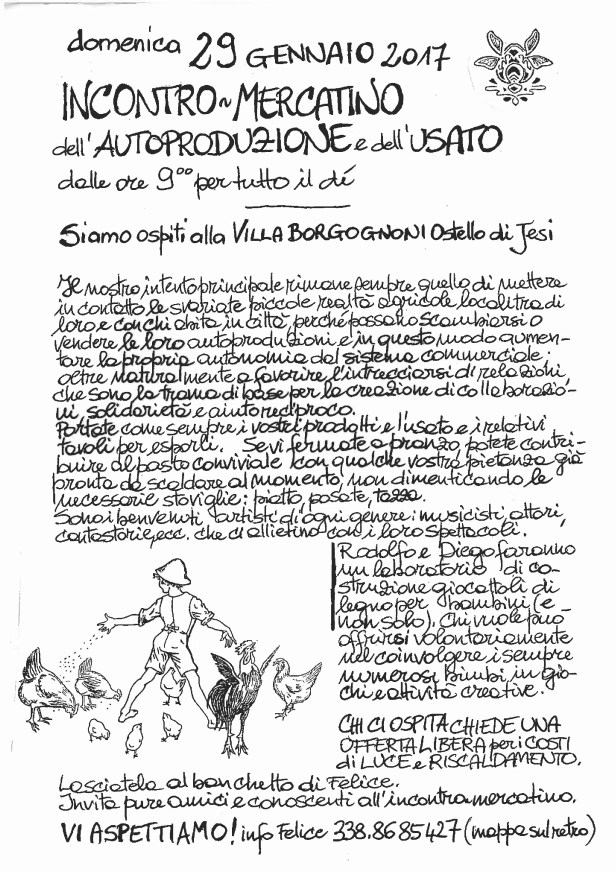 domenica 29 GENNAIO 2017
INCONTRO~MERCATINO
dell'AUTOPRODUZIONE e dell'USATO
dalle ore 9°° per tutto il dé
Siamo ospiti alla VILLA BORGOGNONI Ostello di Jesi
Il nostro intento principale rimane sempre quello di mettere
in contatto le svariate piccole realtà agricole locali tra di
loro e con chi abita in città, perché possano scambiarsi o
vendere le loro autoproduzioni e in questo modo aumen-
tare la propria autonomia dal sistema commerciale;
oltre naturalmente a favorire l'intrecciarsi di relazioni,
che sono la trama di base per la creazione di collaborazio-
ni, solidarietà e aiuto reciproco.
Portate come sempre i vostri prodotti e l'usato e i relativi
tavoli per esporli. Se vi fermate a pranzo, potete contri-
buire al pasto conviviale con qualche vostra pietanza già
pronta da scaldare al momento, non dimenticando le
necessarie stoviglie: piatto, posate, tazza.
Sono i benvenuti artisti di ogni genere: musicisti, attori,
cantastorie, ecc. che ci allietino con i loro spettacoli.
Rodolfo e Diego faranno
un laboratorio di co-
struzione giocattoli di
legno per bambini (e
non solo), chi vuole può
offrirsi volontariamente
nel coinvolgere i sempre
numerosi bimbi in gio-
chi e attività creative.
CHI CI OSPITA CHIEDE UNA
OFFERTA LIBERA per i COSTI
di LUCE e RISCALDAMENTO.
Lasciatela al banchetto di Felice.
Invita pure amici e conoscenti all'incontro mercatino.
VI ASPETTIAMO! info Felice 338.8685427 (mappa sul retro)